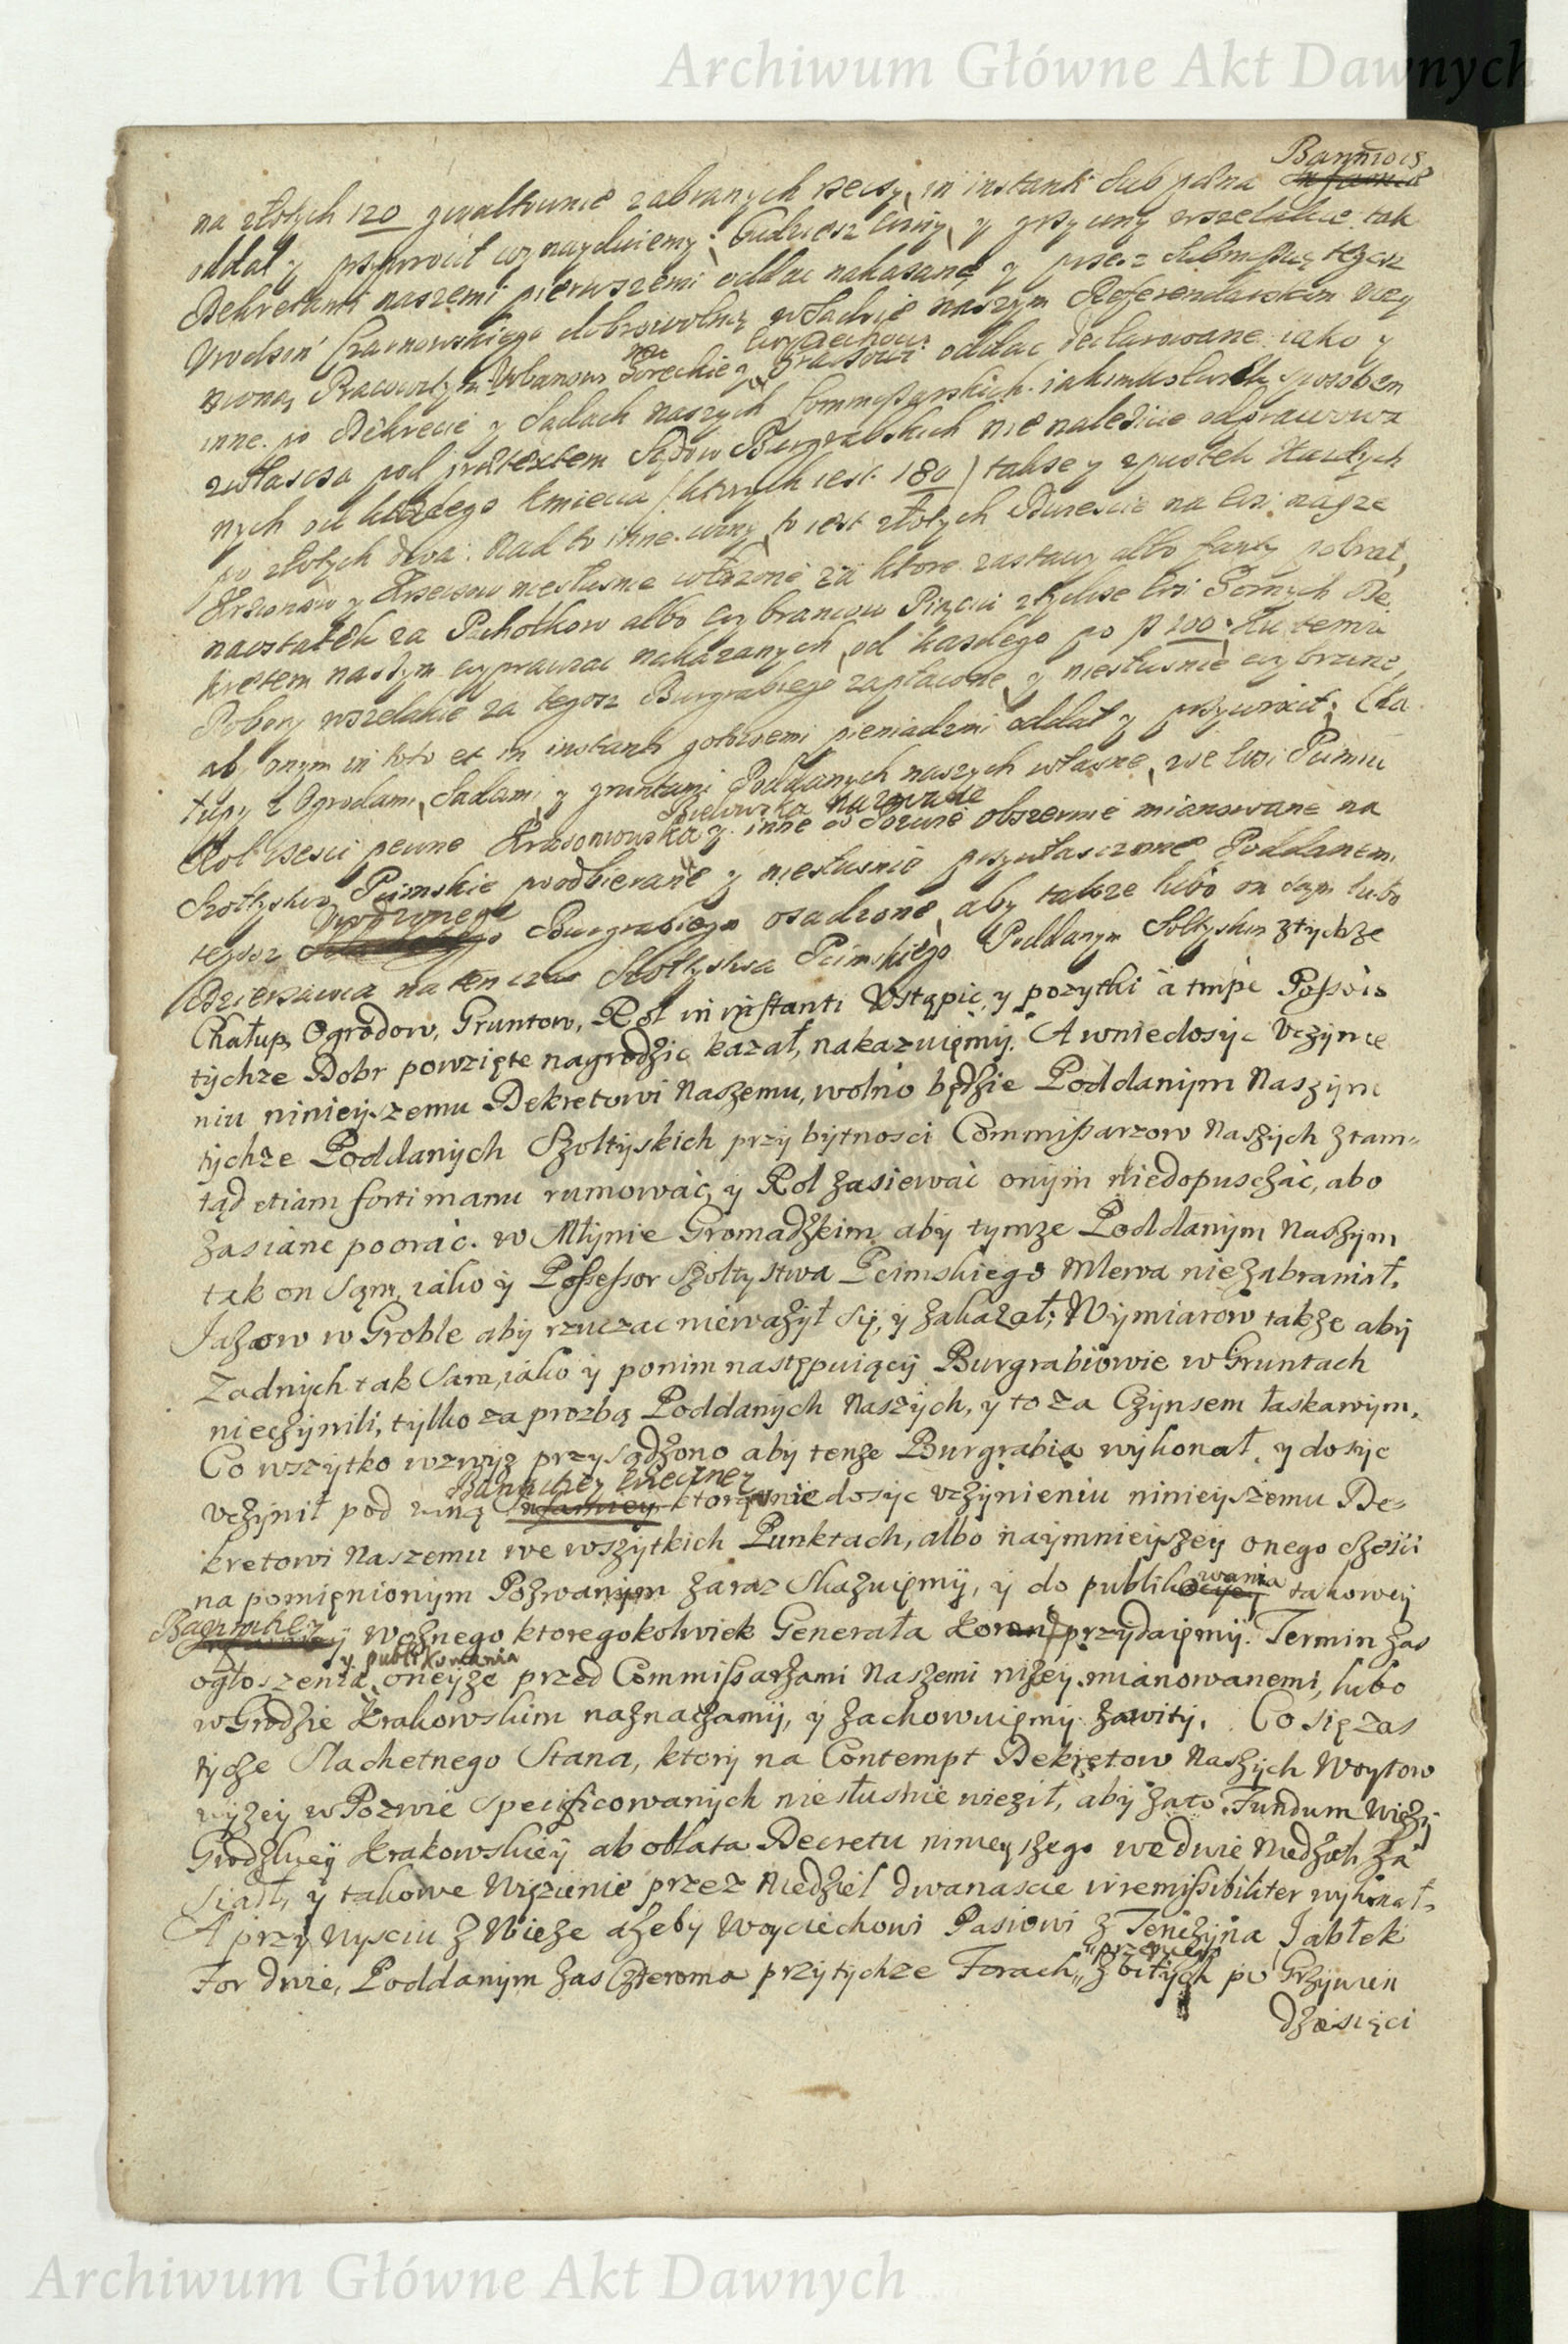 Archiwum Główne Akt Dawnych
Bannitionis
na złotych 120 gwałtownie zabranych rzeczy, in instanti sub pæna infamiæ
oddał y przywrocił wynayduiemy; Tudziesz winy, y grzywny wszelakie tak
Dekretami naszemi pierwszemi oddac nakazane, y przez submissią tegosz
Urodzon' Czarnowskiego dobrowolną w Sądzie naszym Referendarskim
Woyciechowi
Urbanowi oddac declarowane iako y
inne po Dekrecie y Sądach naszych Commissarskich iakimkolwiek sposobem
zwłascza pod prætextem Sądow Burgrabskich nie należicie odprawowa
nych od kożdego kmiecia (ktorych iest 180) takze y zpustek każdych
po złotych dwa. Nad to inne winy, to iest złotych Dwiescie na wsi nasze
Krzczonow y niesłusnie włożone za ktore zastawy albo fanty pobrał,
naostatek za Pachołkow albo wybrancow Pięciu ztychze wsi Gornych De
kretem naszym wyprawiac nakazanych, od kazdego po f 100. Ku temu
Pobory wszelakie za tegosz Burgrabiego zapłacone, y niesłusnie wybrane,
ab onym in toto et in instanti gotowemi pieniądzmi oddał y przywrocił; Cha
łupy z Ogrodami, Sadami, y gruntami Poddanych naszych własne, we wsi Pcimiu
Bielowska nazwane
Rol czesci pewne Krzsoniowska y inne w Pozwie obszernie mianowane na
Szołtystwo Pcimskie poodbierane y niesłusnie przywłasczone Poddanemi
Urodzonego
tegosz Burgrabiego osadzone, aby takze lubo on sam lubo
Dzierzawca na ten czas Szołtystwa Pcimskiego Poddanym Sołtyskim ztychze
Chałup, Ogrodow, Gruntow, Rol in instanti Ustąpic, y pozytki a tmpe Possois
tychze Dobr powzięte nagrodzic kazał, nakazuięmy. A wniedosyc Uczynie
niu ninieyszemu Dekretowi Naszemu, wolno będzie Poddanym Naszym
tychze Poddanych Szołtyskich przy bytnosci Commissarzow Naszych ztam-
tąd etiam forti manu rumowac, y Rol zasiewac onym niedopusczac, abo
zasiane poorac. w Młynie Gromadzkim aby tymze Poddanym Naszym
tak on Sam, iako y Possessor Szołtystwa Pcimskiego Mlewa niezabraniał.
Jazow w Groble aby rzuczac niewazył się, y zakazał; Wymiarow takze aby
Zadnych tak Sam, iako y ponim następuiący Burgrabiowie w Gruntach
nieczynili, tylko za prozbą Poddanych Naszych, y to za Czynsem łaskawym.
Co wszytko wzwyz przysądzono aby tenze Burgrabia wykonał, y dosyc
Bannitiey wieczney
Uczynił pod winą Infamiey ktorą wniedosyc uczynieniu ninieyszemu De-
kretowi Naszemu we wszytkich Punktach, albo naymnieyszey onego części
wania
na pomięnionym Pozwanym zaraz Skazuięmy, y do publikocyey takowey
Bannitiey
y woznego ktoregokolwiek Generała Koron przydaięmy. Termin zas
y publikowania
ogłoszenia oneyze przed Commissarzami Naszemi nizey mianowanemi, lubo
w Grodzie Krakowskim naznaczamy, y zachowuięmy zawity. Co się zas
tycze Slachetnego Stana, ktory na Contempt Dekretow Naszych Woytow
wyzey w Pozwie specificowanych niesłusnie wieził, aby zato Fundum Wiezy
Grodzkiey Krakowskiey ab oblata Decretu ninieyszego we dwie Niedzieli za
siadł, y takowe Więzienie przez Niedziel dwanascie irremissibiliter wykonał.
A przy Wysciu z Wieze azeby Woyciechowi Pasiowi z Tenczyna Jabłek
For dwie, Poddanym zas Czteroma przy tychze Forach, zbitych po Grzywien
dziesięci
Archiwum Główne Akt Dawnych